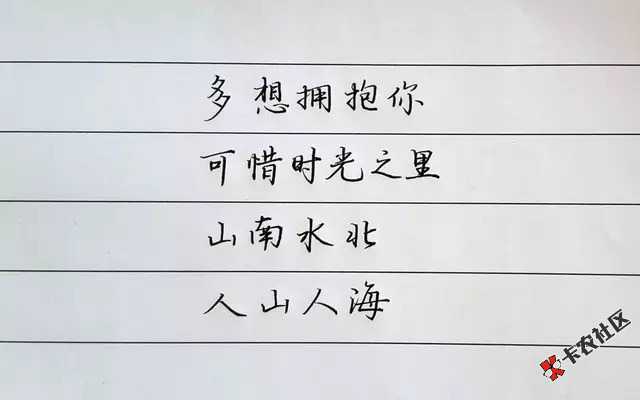 多想拥抱你
可惜时光之里
山南水北
人山人海
卡农社区